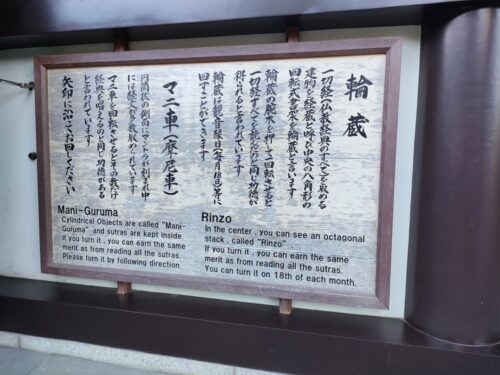 輪蔵
一切経(仏教経典のすべて)を収める
建物を経蔵と呼び中央の八角形の
回転式書架を輪蔵と言います
輪蔵の腕木を押して一回転させると
一切経すべてを読んだのと同じ功徳が
得られると言われています
輪蔵は観音縁日(毎月18日)等に
回すことができます
マニ車(摩尼車)
円筒状の側面にマントラが刻まれ中
には経文が巻き収められています
マニ車を回転させるとその数だけ
経典を唱えるのと同じ功徳がある
と言われています
矢印に沿ってお回しください
Mani-Guruma
Cylindrical Objects are called "Mani-
Guruma" and sutras are kept inside
If you turn it , you can earn the same
merit as from reading all the sutras.
Please turn it by following direction.
Rinzo
In the center , you can see an octagonal
stack , called "Rinzo"
If you turn it , you can earn the same
merit as from reading all the sutras.
You can turn it on 18th of each month.